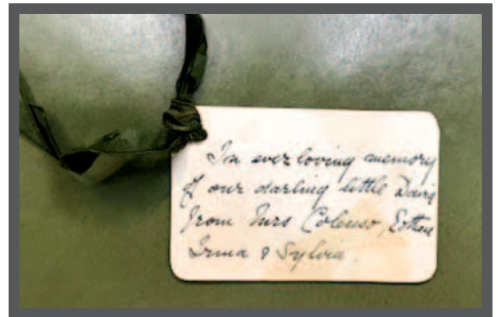 In ever loving memory
of our darling little Davie
from Mrs Colenso, Esther
Irma & Sylvia.